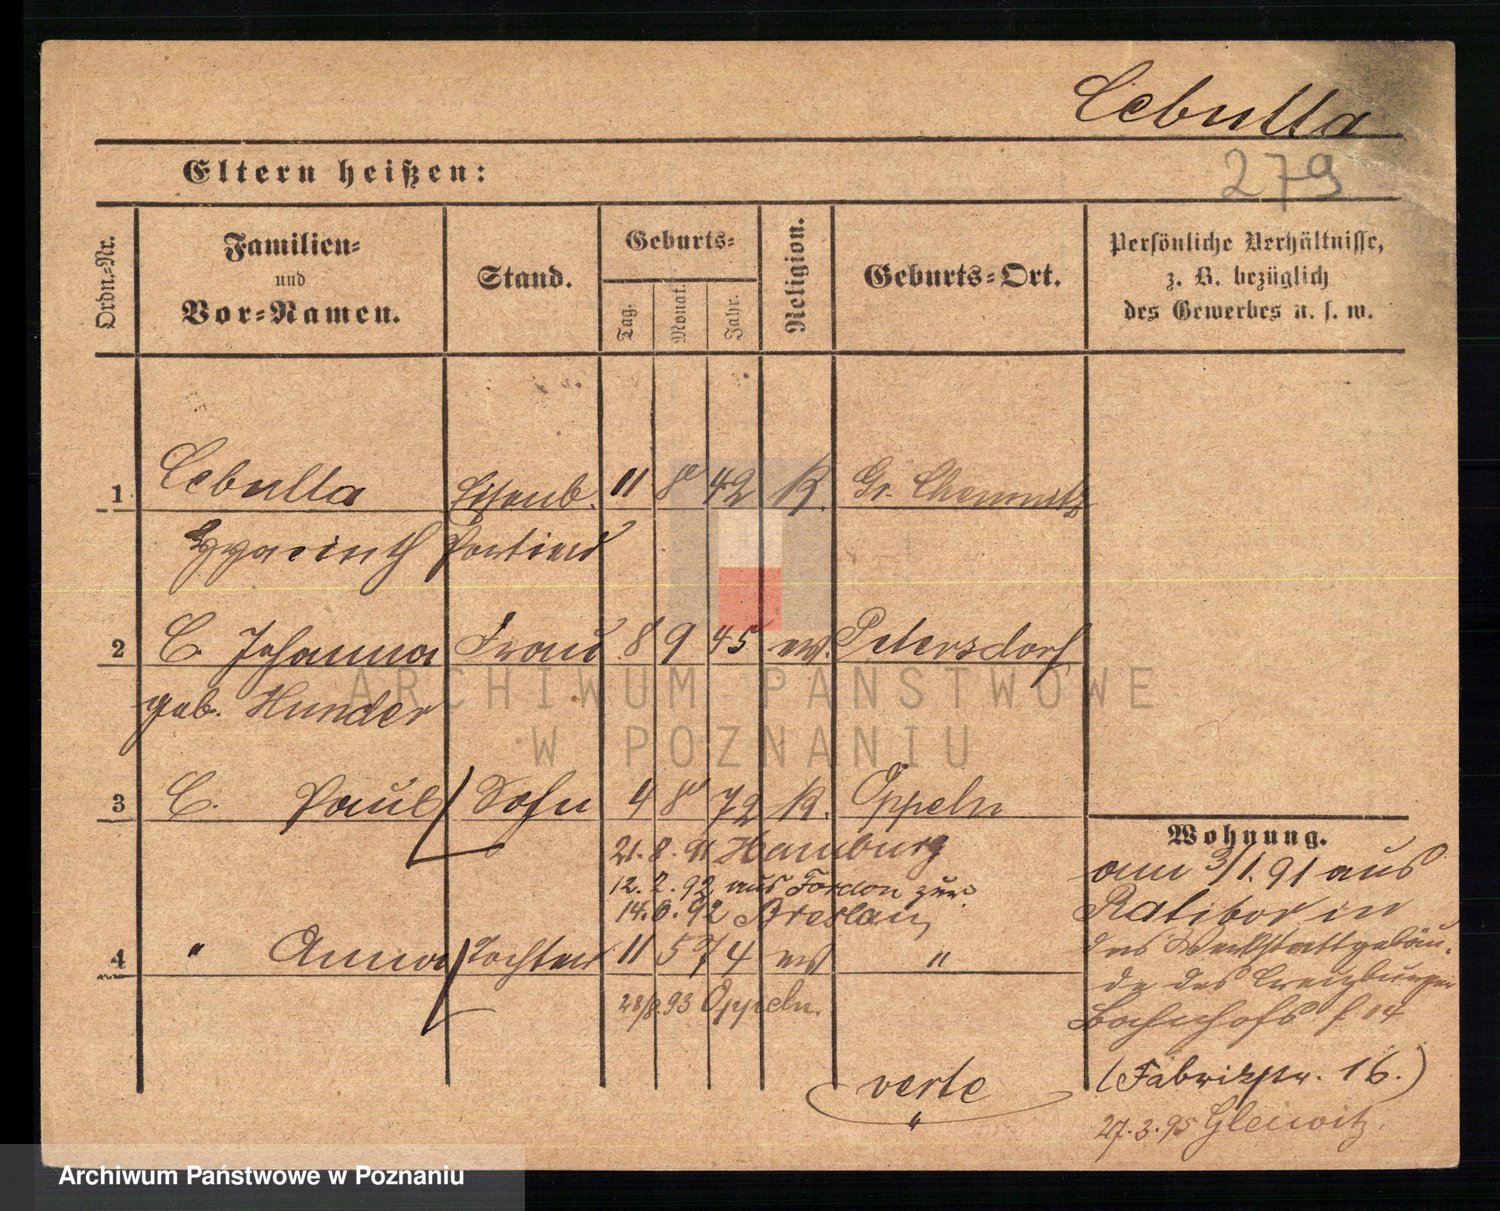 Cebulla
279
Eltern heißen:
Ordn.-Nr.
Familien- und Vor-Namen.
Stand.
Geburts-
Tag.
Monat.
Jahr.
Religion.
Geburts-Ort.
Persönliche Verhältnisse,
z. B. bezüglich
des Gewerbes u. s. w.
1 Cebulla Eisenb. 11 8 42 K. Gr. Chemnitz
Hyacinth Portier
2 C. Johanna Frau 8 9 45 ev. Petersdorf
geb. Hunder
3 C. Paul Sohn 4 8 72 K. Oppeln
21.8.91 Hamburg
12.2.92 aus Fordon zur.
14.6.92 Breslau
4 " Anna Tochter 11 5 74 ev "
28/8.93 Oppeln.
verte
"
Wohnung.
am 3/1.91 aus
Ratibor in
des Werkstattgebäu-
de des Creuzburger
Bahnhofs f. 14
(Fabrikstr. 16.)
27.3.95 Gleiwitz.
ARCHIWUM PAŃSTWOWE
W POZNANIU
Archiwum Państwowe w Poznaniu